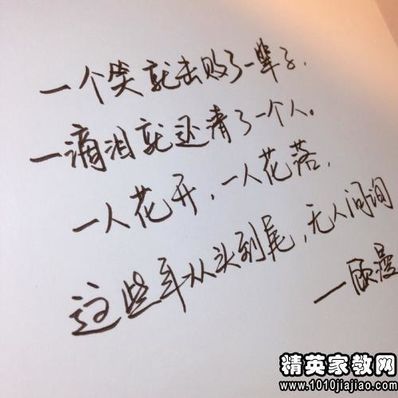 一个笑就击败了一辈子，
一滴泪就还清了一个人。
一人花开，一人花落，
这些年从头到尾，无人问询
—顾漫
精英家教网
www.1010jiajiao.com